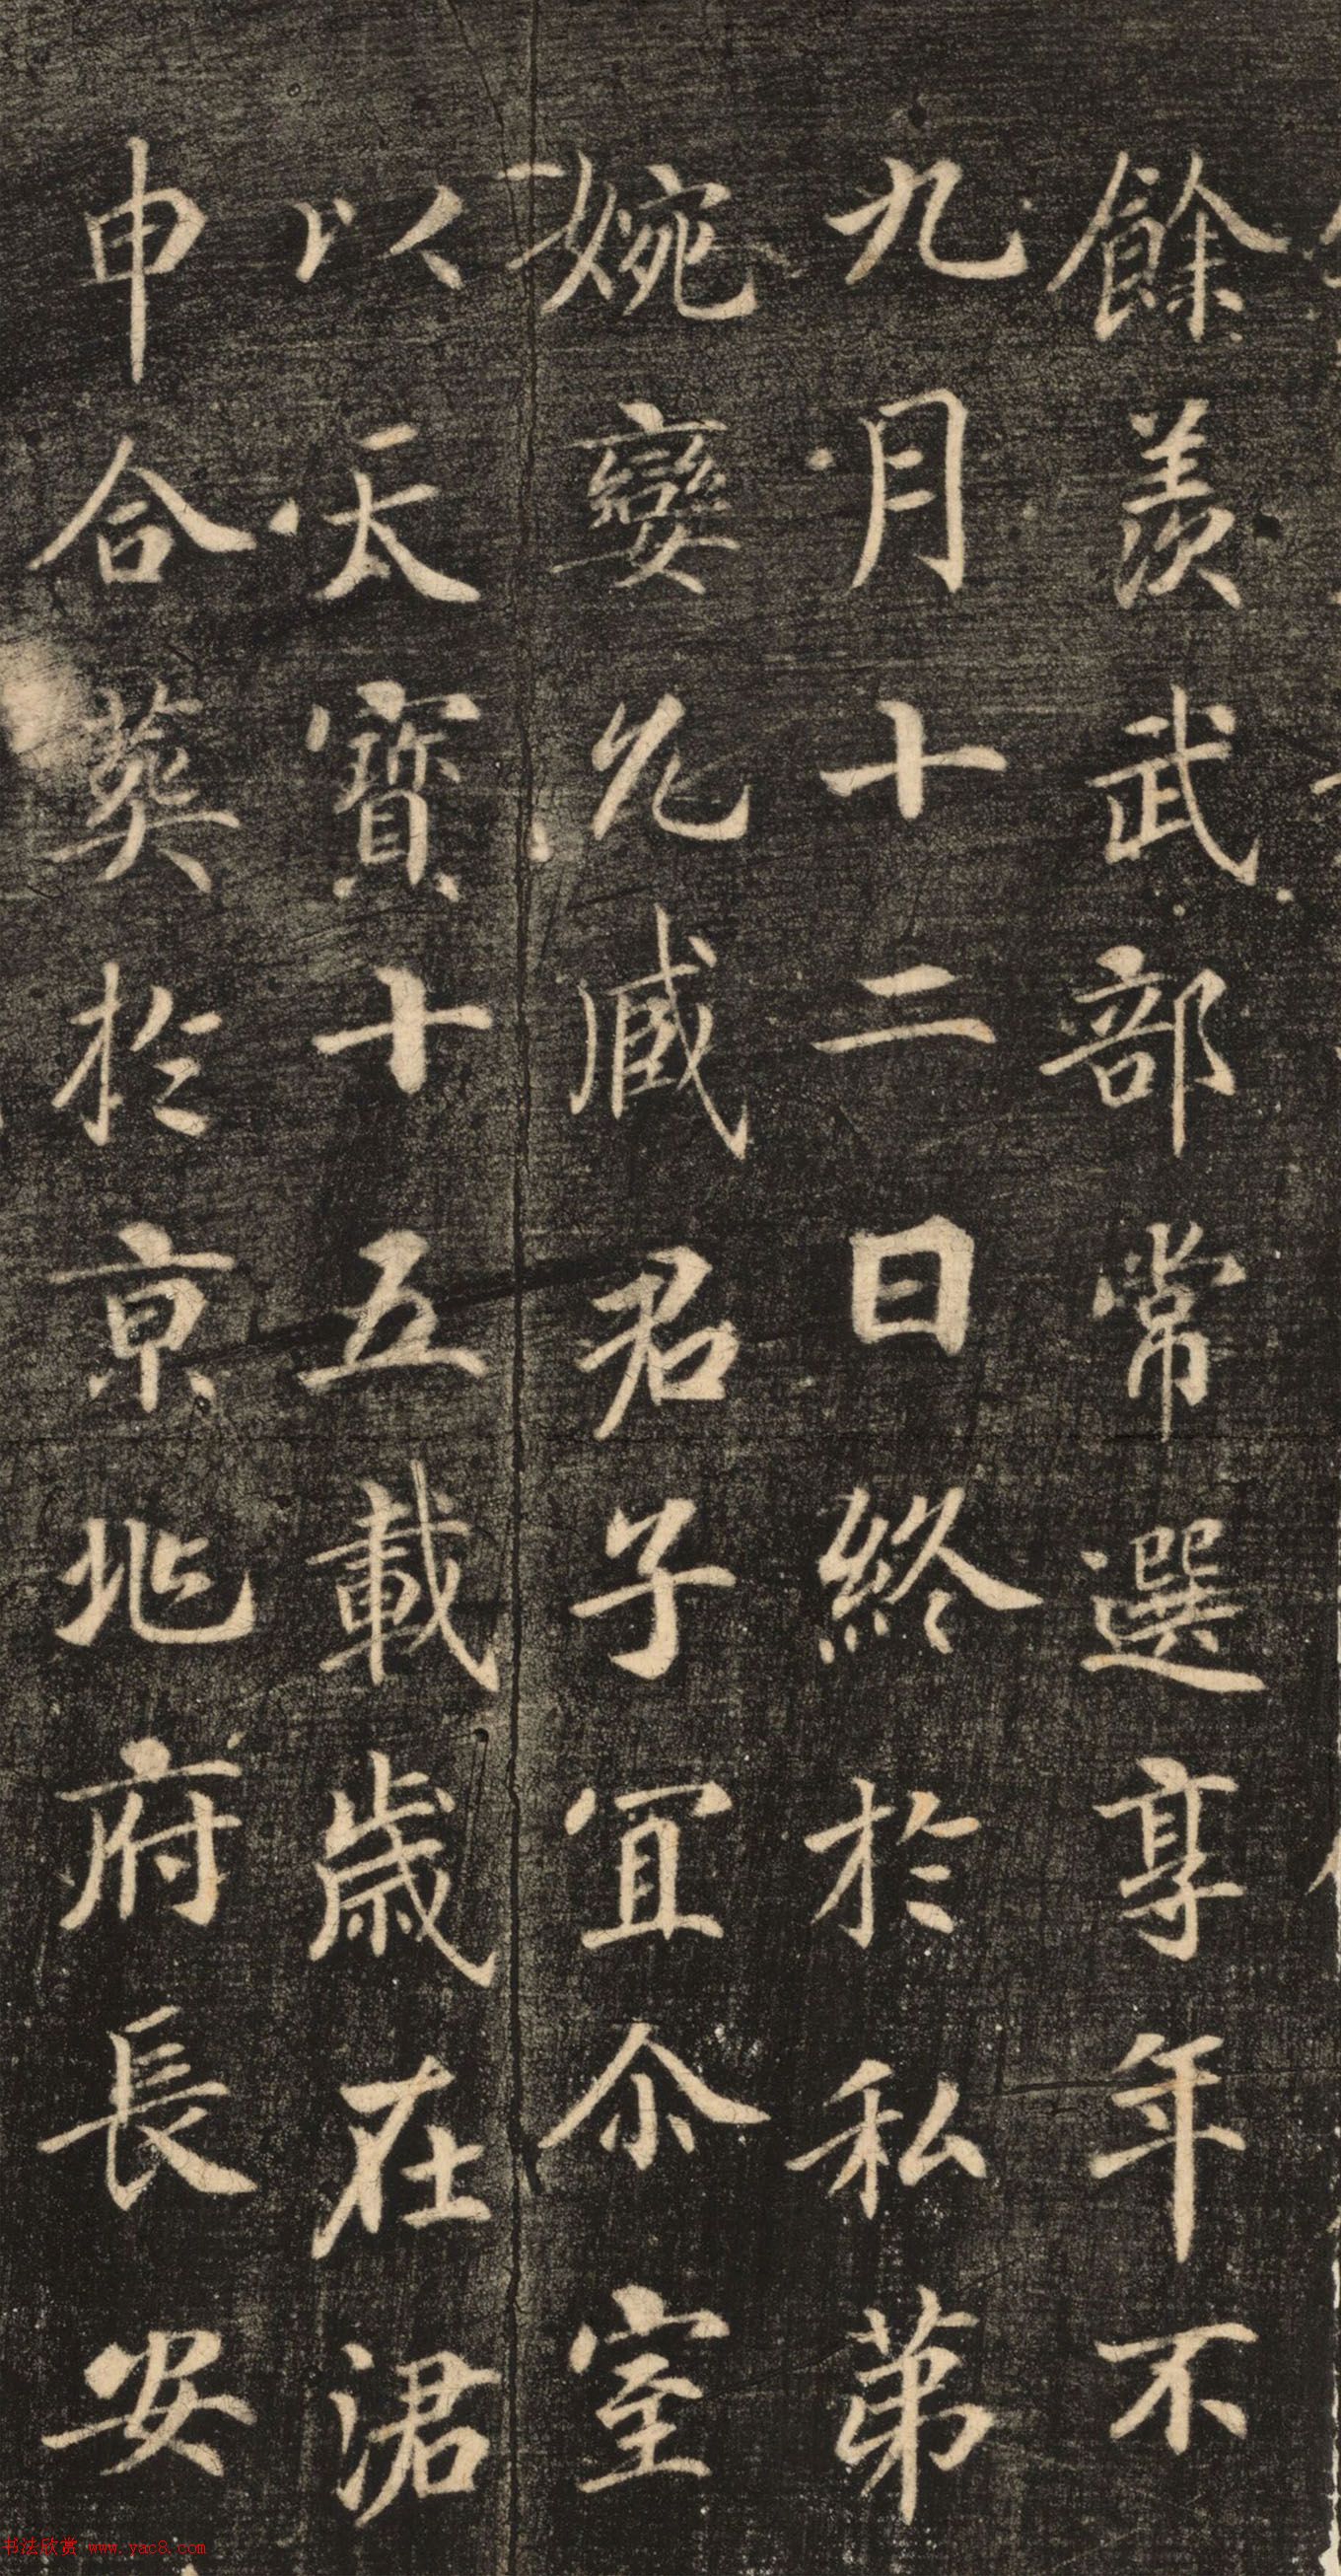 餘羨武部常選享年不
九月十二日終於私苐
婉孌允臧君子宜尒室
以天寶十五載歲在涒
申合葬於京兆府長安
书法欣赏 www.yac8.com